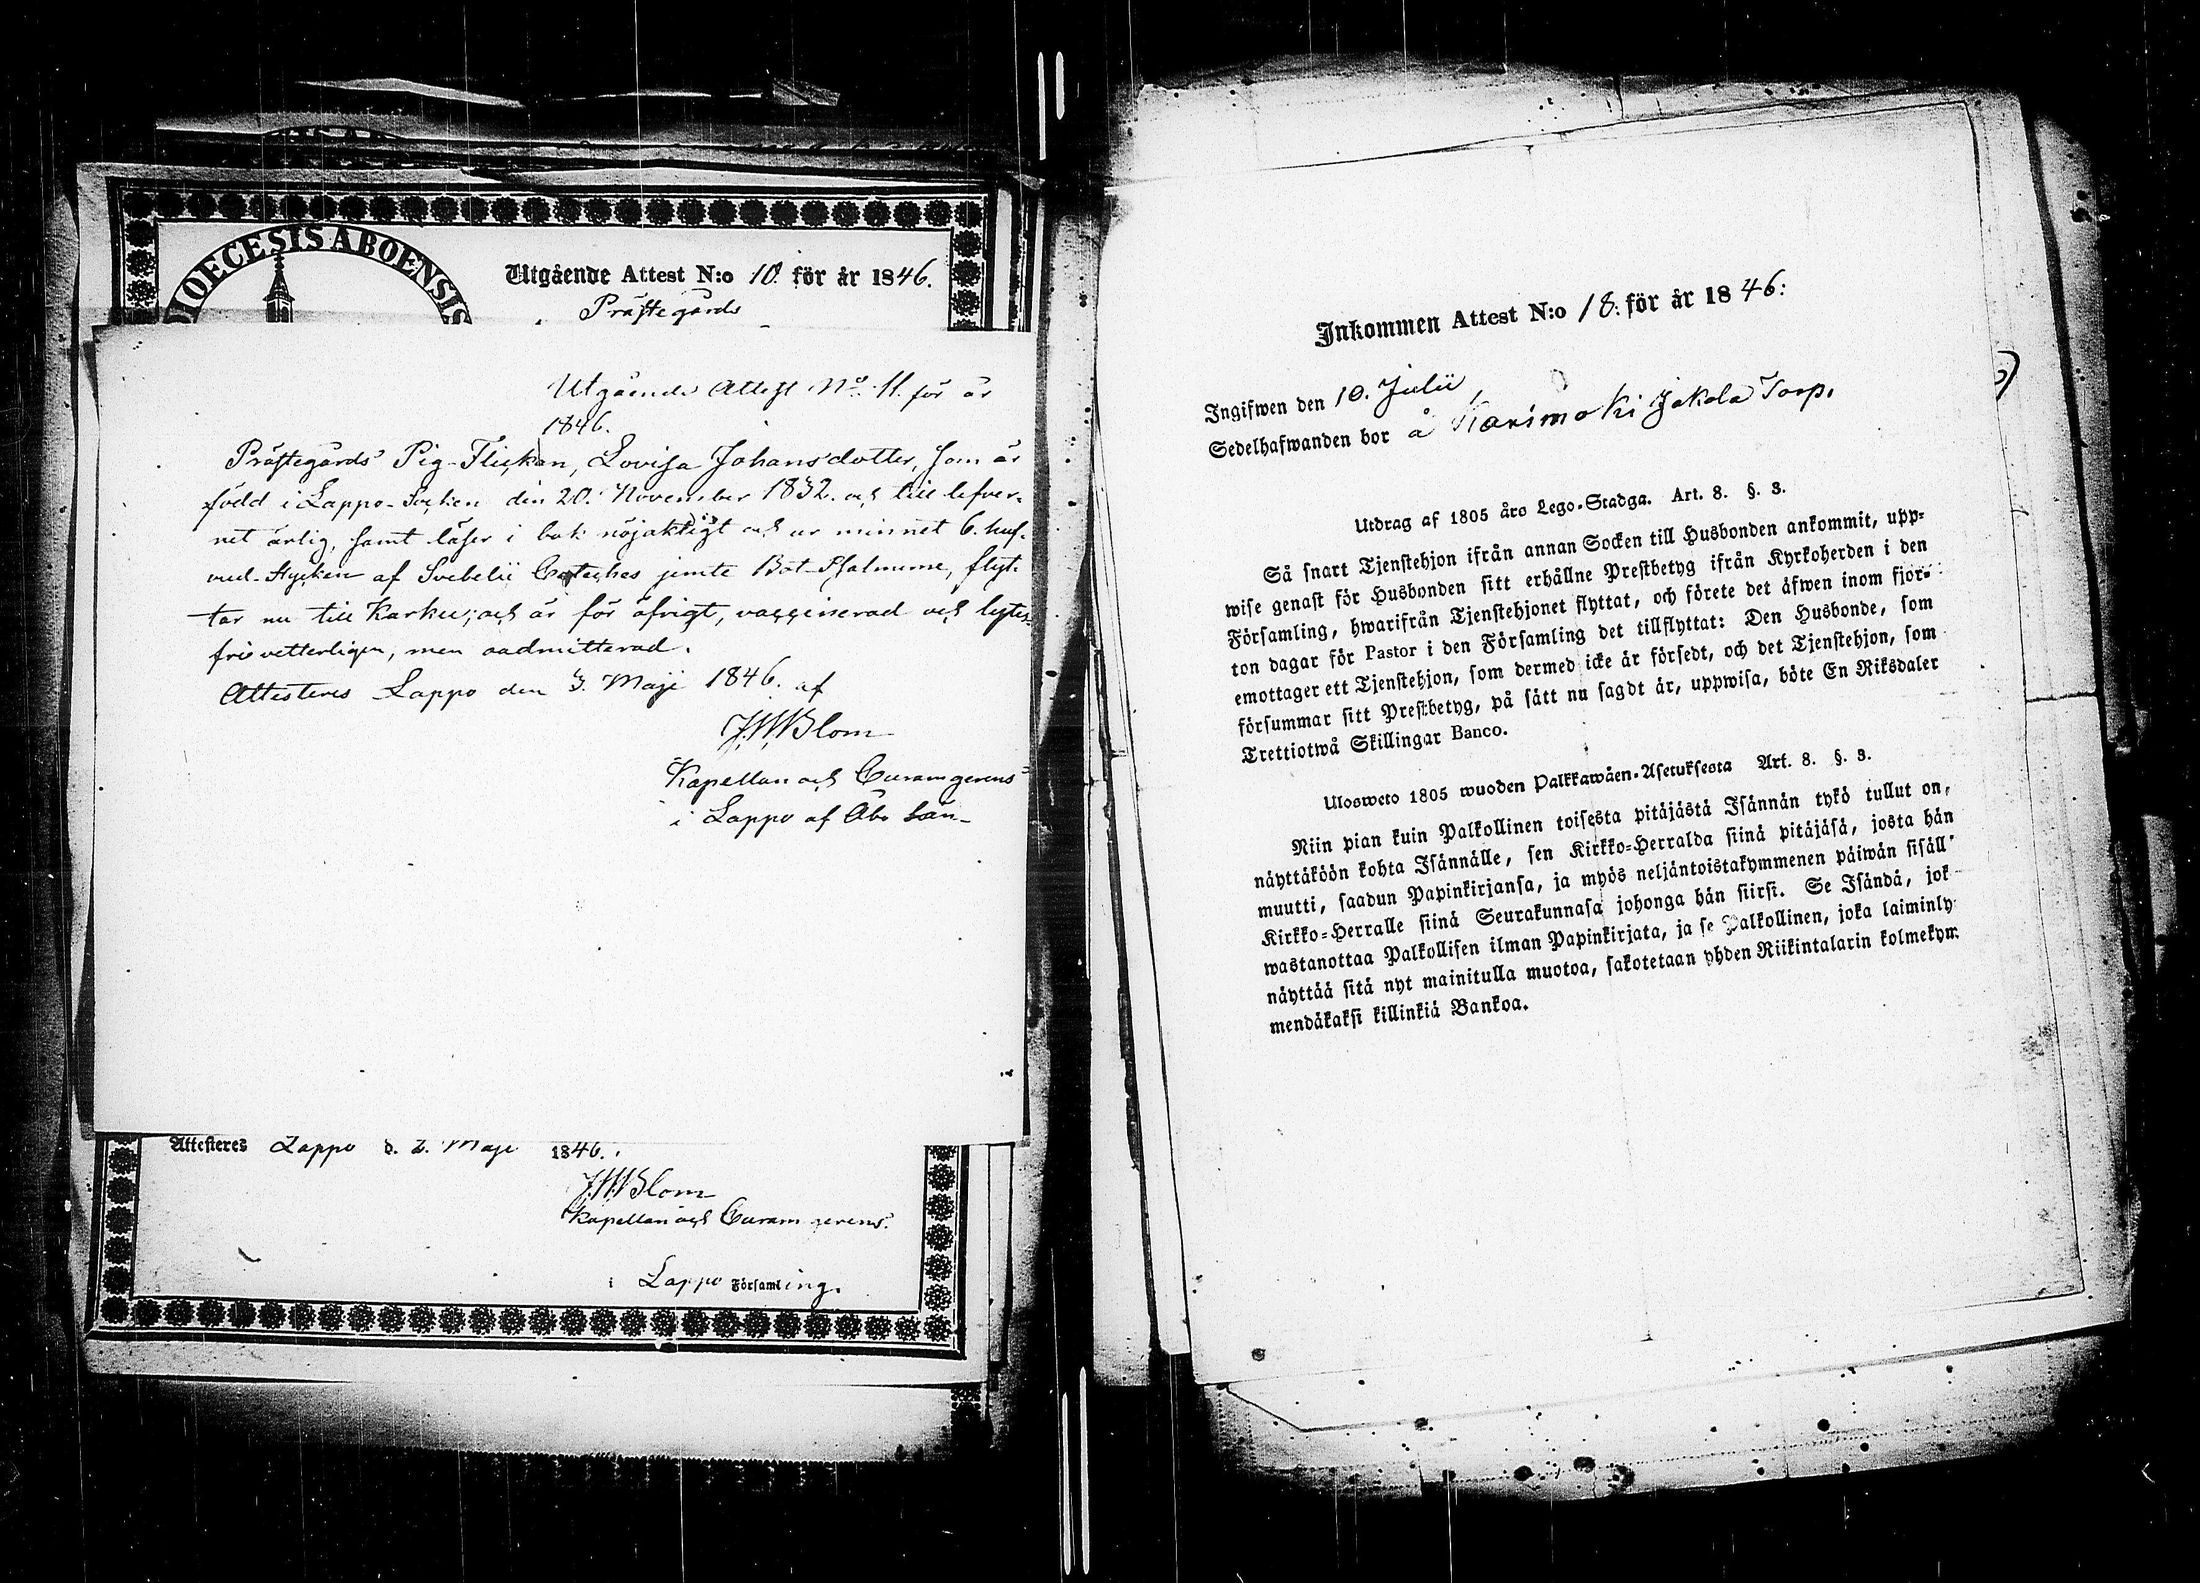 DIOECESIS ABOENSIS
Utgående Attest N:o 10. för år 1846.
Prästegårds
Utgående Attest No. 11. för år
1846.
Prästegårds Pig-Flickan, Lovisa Johansdotter, som är
född i Lappo-Socken den 20. November 1832. och till lefver-
net ärlig, samt läser i bok nöjaktigt och ur minnet 6. huf-
vud-stycken af Svebelii Cateches jemte Bot-Psalmerne, flyt-
tar nu till Karku; och är för öfrigt, vaccinerad och lytes-
fri vetterligen, men oadmitterad.
Attesteres Lappo den 3. Maji 1846. af
J.W.Blom
Kapellan och Curamgerens
i Lappo af Åbo Län-
Attesteres Lappo d. 2. Maji 1846.
J.W.Blom
Kapellan och Curam gerens.
i Lappo Församling.
Inkommen Attest N:o 18. för år 1846:
Ingifwen den 10. Julii
Sedelhafwanden bor å Karimaki Jakola Torp.
Utdrag af 1805 års Lego-Stadga. Art. 8. §. 3.
Så snart Tjenstehjon ifrån annan Socken till Husbonden ankommit, upp-
wise genast för Husbonden sitt erhållne Prestbetyg ifrån Kyrkoherden i den
Församling, hwarifrån Tjenstehjonet flyttat, och förete det äfwen inom fjor-
ton dagar för Pastor i den Församling det tillflyttat: Den Husbonde, som
emottager ett Tjenstehjon, som dermed icke är försedt, och det Tjenstehjon, som
försummar sitt Prestbetyg, på sätt nu sagdt är, uppwisa, böte En Riksdaler
Trettiotwå Skillingar Banco.
Ulosweto 1805 wuoden Palkkawäen-Asetuksesta Art. 8. §. 3.
Niin pian kuin Palkollinen toisesta pitäjästä Isännän tykö tullut on,
näyttäköön kohta Isännälle, sen Kirkko-Herralda siinä pitäjäsä, josta hän
muutti, saadun Papinkirjansa, ja myös neljäntoistakymmenen päiwän sisäll
Kirkko-Herralle siinä Seurakunnasa johonga hän siirsi. Se Isändä, jok
wastanottaa Palkollisen ilman Papinkirjata, ja se Palkollinen, joka laiminly
näyttää sitä nyt mainitulla muotoa, sakotetaan yhden Riikintalarin kolmekym
mendäkaksi killinkiä Bankoa.